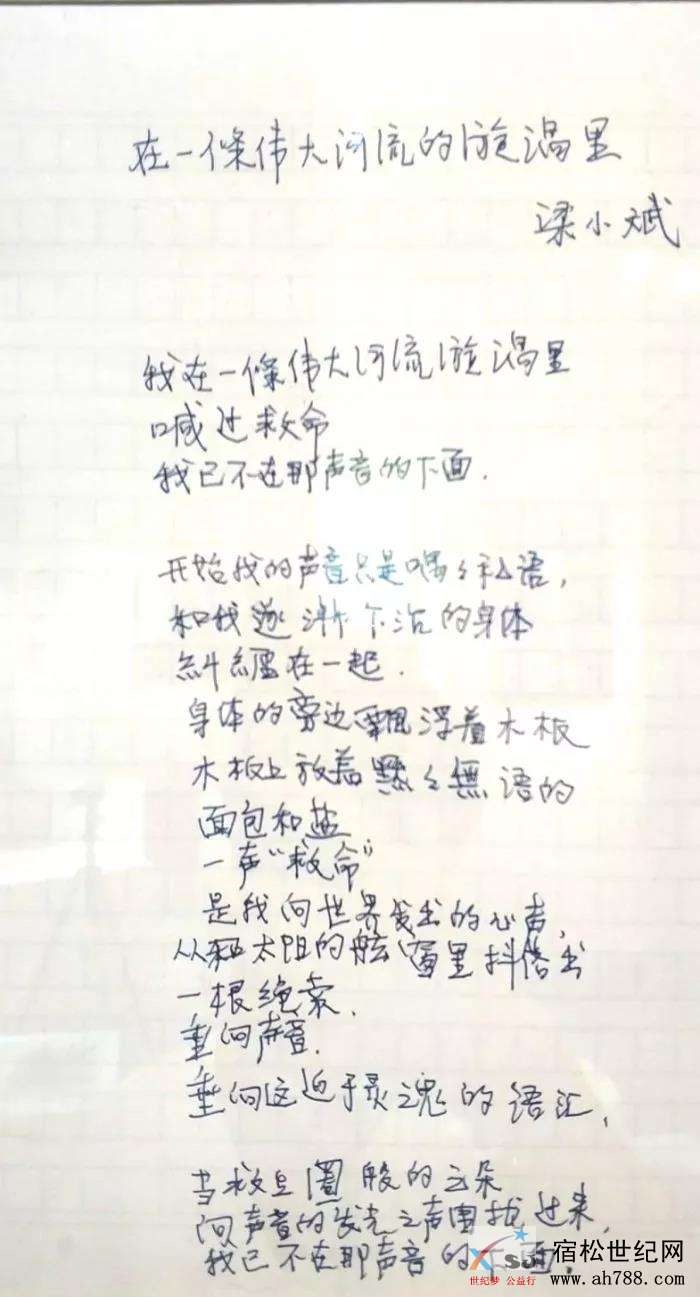 在一條伟大河流的漩渦里
梁小斌
我在一條伟大河流漩渦里
喊过救命
我已不在那声音的下面.
开始我的声音只是喁々私语,
和我逐渐下沉的身体
糾纏在一起.
身体的旁边飄浮着木板
木板上放着默々無语的
面包和盐
一声“救命”
是我向世界发出的心声,
从太阳的舷窗里抖落出
一根绳索,
垂向声音.
垂向这迫于灵魂的语汇,
当救生圈般的云朵
向声音的发光之声围拢过来,
我已不在那声音的下面.
宿松世纪网
世纪梦 公益行
www.ah788.com